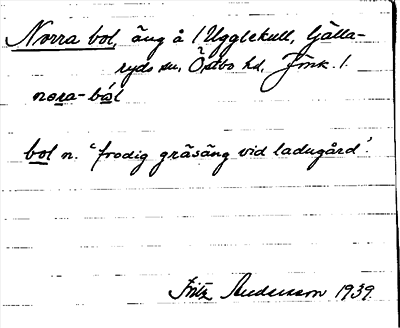 Norra bol, äng å 1 Ugglekull, Gälla-
ryds sn, Östbo hd, Jmk. l.
nora-bol
bol n. 'frodig gräsäng vid ladugård'.
Fritz Andersson 1939.